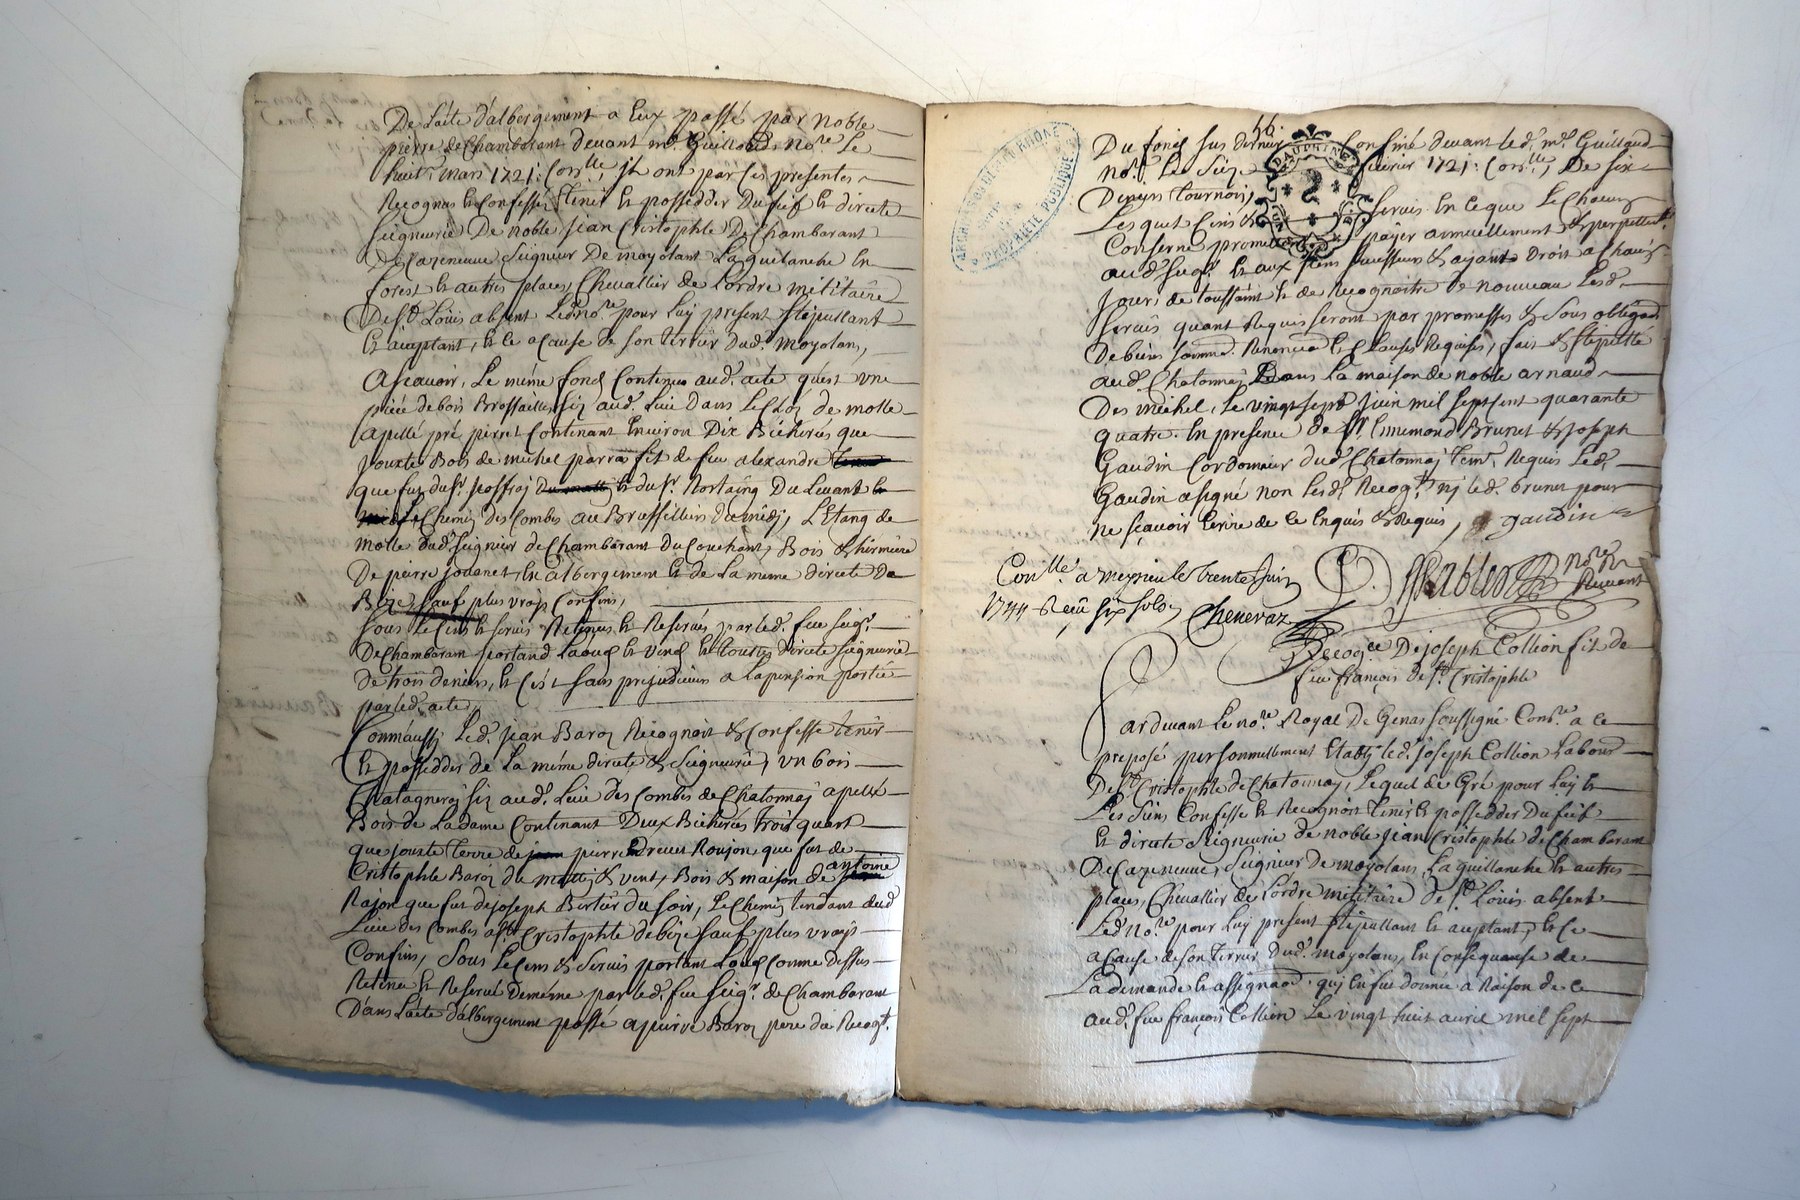 De L'acte d'albergement a Eux passé par noble
pierre de Chambarant devant me. Guillaud no.re Le
huit.e mars 1721: Con.lle, Jls ont par Ces presentes
Recognus & Confessé tenir & possedder Du fief & directe
Seigneurie De noble jean Cristophle De Chambarant
De Cazeneuve Seigneur De moyolant La guilanche En
forest & autres places, Chevallier de Lordre militaire
De St. Louis absent Led. no.re pour Luy present stipullant
& acceptant, & Ce a Cause de son terrier dud. moyolans,
Ascavoir, Le même fond Contenu aud. acte qu'est une
piéce de bois Brossailles siz aud. Lieu Dans Le Cloz de molle
apellé pré pierret Contenant Environ Dix Bicherées que
Jouxte Bois de michel parra fil de feu alexandre
que fut du Sr. joffroj & du Sr. Rortaing Du Levant
Chemin des Combes au Brussilliers du midj, L'Etang de
molle dud. seigneur de Chambarant Du Couchant, Bois & hermiere
De pierre jouanet, En albergement & de La meme directe De
Bize, sauf plus vrays Confins,
sous Le Cens & servis Retenus & Reservés par led. feu seigr.
De Chambaran portand Laoud & vend & touttes directe seigneurie
de trois deniers, & C'est sans prejudicier a La pension portée
par led. acte,
Comm'aussy Led. jean Baron Recognoit & Confesse tenir
& possedder de La même directe & Seigneurie, un bois
Chatagneroy siz aud. Lieu des Combes de Chatonnaj apellé
Bois de La dame Contenant Deux Bicherées trois quart
que jouxte terre de pierre Roujon que fut de
Cristophle Baron du mattin & vent, Bois & maison de antoine
Rajon que fut de joseph Bertier du soir, Le Chemin tendant dud.
Lieu des Combes a St. Cristophle de bize sauf plus vrays
Confins, Sous Le Cens & Servis portant Loud Comme dessus
Retenu & Reservé De même par led. feu seigr. de Chambarant
Dans L'acte d'albergement passé a pierre Baron pere du Recogt.
56
ARCHIVES DU RHONE
PROPRIÉTÉ PUBLIQUE
DAUPHINÉ
Du fond sus dernier Confiné devant led. me. Guillaud
no.re Le Seize fevrier 1721: Con.lle, De six
Deniers tournois,
Lesquels Cens & Servis En Ce que Le Chacun
Conserne promettent payer annuellement & perpetuelt.
aud. seigr. & aux siens successeurs & ayants Droit a Chaque
Jours de toussaint & de Recognoitre De nouveau Lesd.
servis quant Requis seront par promesses & Sous obligaon.
De biens soumon. Renonciaon. & Clauses Requises, fait & stipullé
aud. Chatonnaj Dans La maison de noble arnaud
Des michel, Le vingt sept Juin mil sept Cent quarante
quatre. En presence de Sr. Ennemond Brunet & joseph
Gaudin Cordonnier dud. Chatonnaj tem. Requis Led.
Gaudin a signé non Lesd. Recogts. nj led. brunet pour
ne sçavoir Ecrire de Ce Enquis & Requis, gaudin
Con.llé a meyrieu le trente juin
1744 Receu six sols, Cheneraz
no.re
Recevant
Recog.ce De joseph Collion fil de
feu françois de St. Cristophle
Pardevant Le no.re Royal De Genas soussigné Com.re a Ce
preposé personnellement Etably led. joseph Collion Labour
De St. Cristophle de Chatonnay, Lequel de Gré pour Luy &
Les Siens Confesse & Recognoit tenir & possedder Du fief
& directe Seigneurie de noble jean Cristophle de Chambarant
De Cazeneuve, Seigneur De moyolans, La guillanche & autres
places, Chevallier de L'ordre militaire de St. Louis absent
Led. no.re pour Luy present stipullant & acceptant, & Ce
a Cause de son terrier Dud. moyolans, En Consequance de
La demande & assignaon. qui En fut donnée a Raison de ce
aud. feu françois Collion Le vingt huit avril mil sept